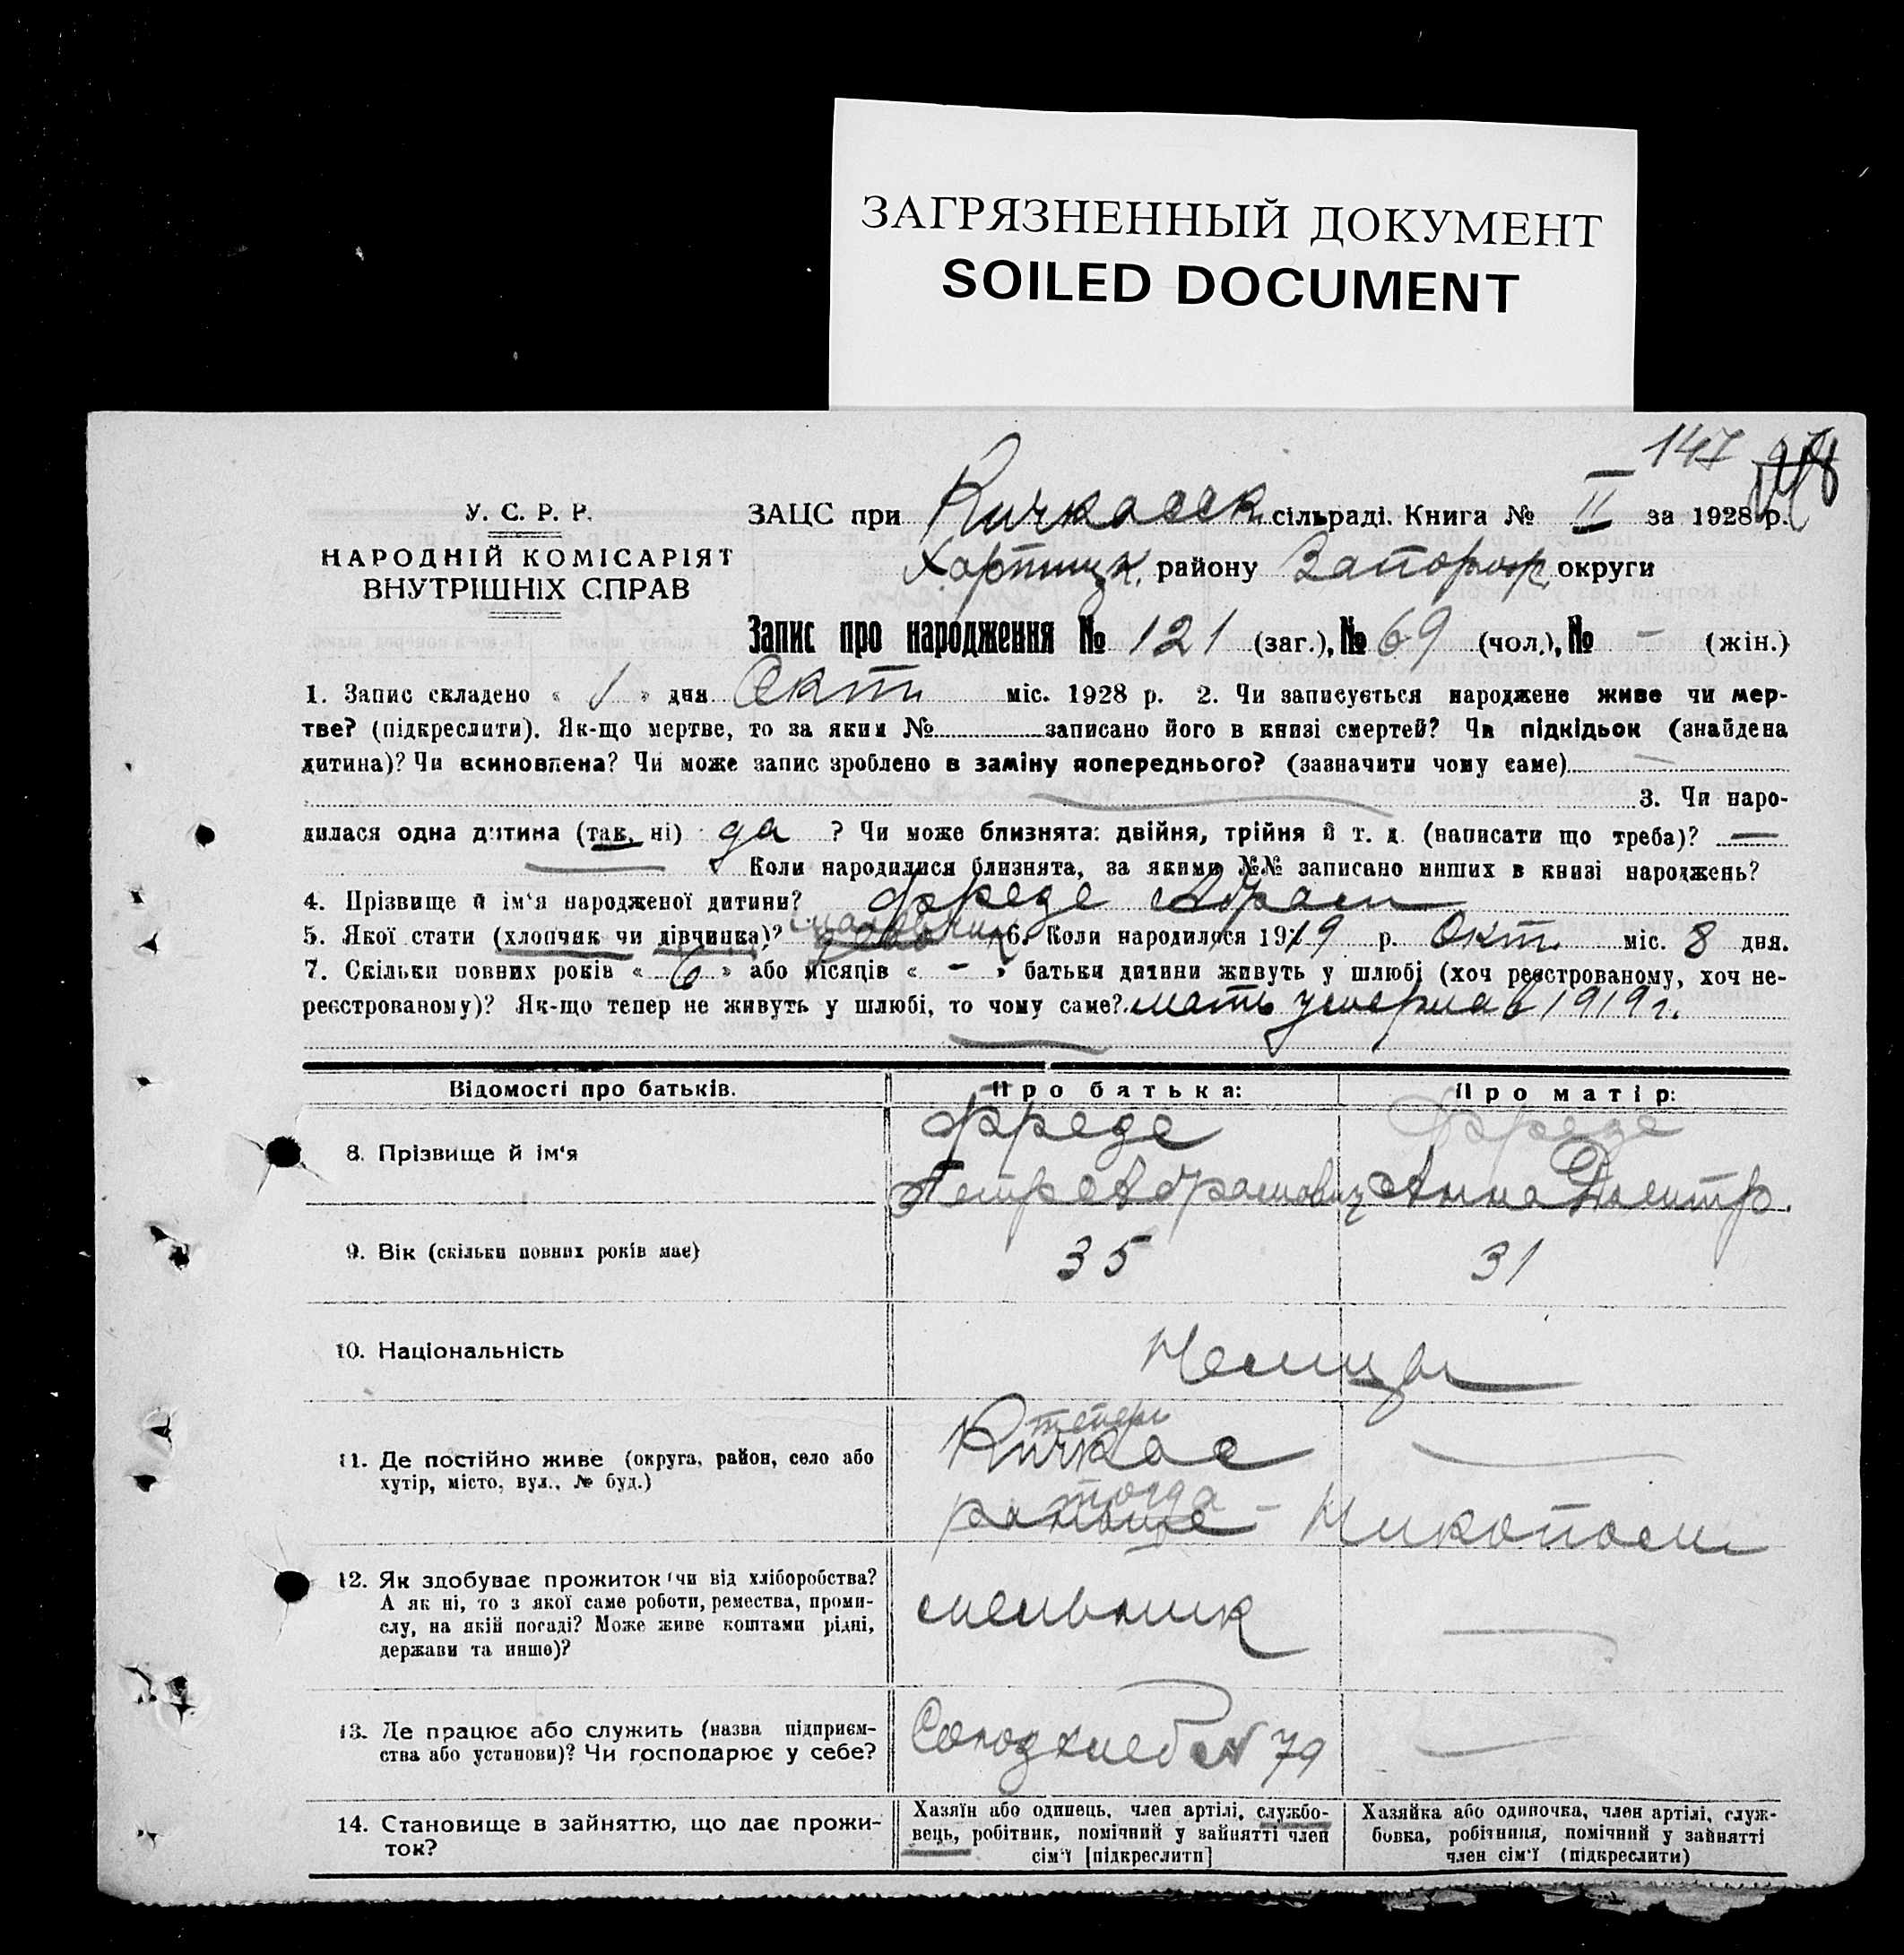 ЗАГРЯЗНЕННЫЙ ДОКУМЕНТ
SOILED DOCUMENT
147
У. С. Р. Р.
НАРОДНІЙ КОМІСАРІЯТ
ВНУТРІШНІХ СПРАВ
ЗАЦС при Кичкасск. сільраді. Книга № II за 1928 р.
Хортицк. району Запорож. округи
Запис про народження № 121 (заг.), № 69 (чол.), № - (жін.)
1. Запис складено « 1 » дня Окт. міс. 1928 р. 2. Чи записується народжене живе чи мер-
тве? (підкреслити). Як-що мертве, то за яким № записано його в книзі смертей? Чи підкідьок (знайдена
дитина)? Чи всиновлена? Чи може запис зроблено в заміну попереднього? (зазначити чому саме)
3. Чи наро-
дилася одна дитина (так, ні) да ? Чи може близнята: двійня, трійня й т. д. (написати що треба)? —
Коли народилися близнята, за якими №№ записано инших в книзі народжень?
4. Прізвище й ім'я народженої дитини? Фрезе Абрам
5. Якої стати (хлопчик чи дівчинка)? мальчик 6. Коли народилося 1919 р. Окт. міс. 8 дня.
7. Скільки повних років « 6 » або місяців « - » батьки дитини живуть у шлюбі (хоч реєстрованому, хоч не-
реєстрованому)? Як-що тепер не живуть у шлюбі, то чому саме? мать умерла в 1919 г.
Відомості про батьків. Про батька: Про матір:
8. Прізвище й ім'я
Фрезе Фрезе
Петр Абрамович Анна Дмитр.
9. Вік (скільки повних років має) 35 31
10. Національність Немцы
11. Де постійно живе (округа, район, село або
хутір, місто, вул., № буд.)
теперь
Кичкас
тогда
раньше - Никополи
12. Як здобуває прожиток (чи від хліборобства?
А як ні, то з якої саме роботи, ремества, проми-
слу, на якій посаді? Може живе коштами рідні,
держави та инше)?
мельник
13. Де працює або служить (назва підприєм-
ства або установи)? Чи господарює у себе?
Союзхлеб № 79
14. Становище в зайняттю, що дає прожи-
ток?
Хазяїн або одинець, член артілі, службо-
вець, робітник, помічний у зайнятті член
сім'ї [підкреслити]
Хазяйка або одиночка, член артілі, служ-
бовка, робітниця, помічний у зайнятті
член сім'ї (підкреслити)